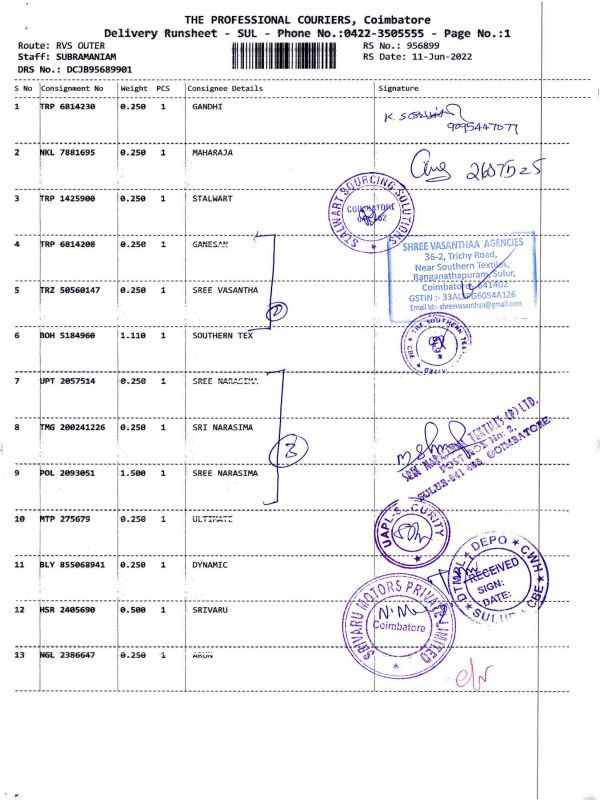 THE PROFESSIONAL COURIERS, Coimbatore
Delivery Runsheet - SUL - Phone No.:0422-3505555 - Page No.:1
Route: RVS OUTER RS No.: 956899
Staff: SUBRAMANIAM RS Date: 11-Jun-2022
DRS No.: DCJB95689901
S No Consignment No Weight PCS Consignee Details Signature
1 TRP 6814230 0.250 1 GANDHI
9095447077
2 NKL 7881695 0.250 1 MAHARAJA
3 TRP 1425900 0.250 1 STALWART
STALWART SOURCING SOLUTIONS
COIMBATORE
4 TRP 6814208 0.250 1 GANESAN
SHREE VASANTHAA AGENCIES
36-2, Trichy Road,
Near Southern Textiles,
Ranganathapuram, Sulur,
Coimbatore 641402
Email Id:- shreevasanthaa@gmail.com
5 TRZ 50560147 0.250 1 SREE VASANTHA
2
6 BOH 5184960 1.110 1 SOUTHERN TEX
7 UPT 2057514 0.250 1 SREE NARASIMA
8 TMG 200241226 0.250 1 SRI NARASIMA
3
SREE NARASIMHA TEXTILES (P) LTD.
POST BOX No: 2,
SULUR-641 402, COIMBATORE
9 POL 2093051 1.500 1 SREE NARASIMA
10 MTP 275679 0.250 1 ULTIMATE
UAPL-SECURITY
11 BLY 855068941 0.250 1 DYNAMIC
DEPO CWH
RECEIVED
SIGN:
DATE:
SULUR CBE
12 HSR 2405690 0.500 1 SRIVARU
SRIVARU MOTORS PRIVATE LIMITED
Coimbatore
13 NGL 2386647 0.250 1 ARUN